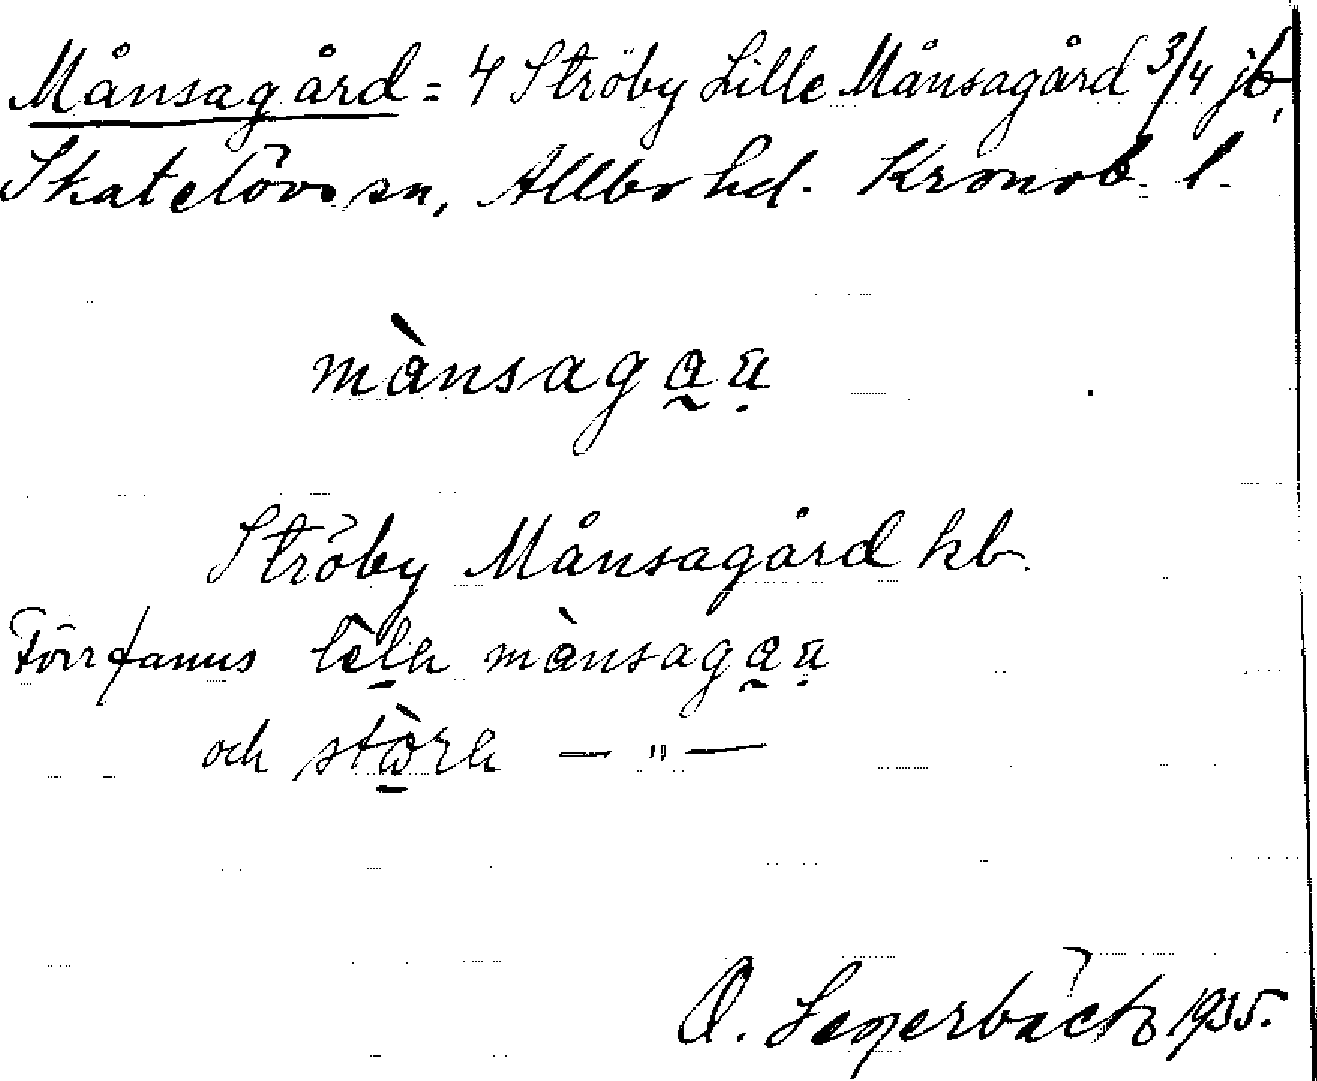 Månsagård = 4 Ströby Lille Månsagård 3/4 jb,
Skatelövs sn, Allbo hd. Kronob. l.
mànsagau
Ströby Månsagård kb.
Förr fanns lela mànsagau
och stòra — " —
O. Segerbäck 1935.